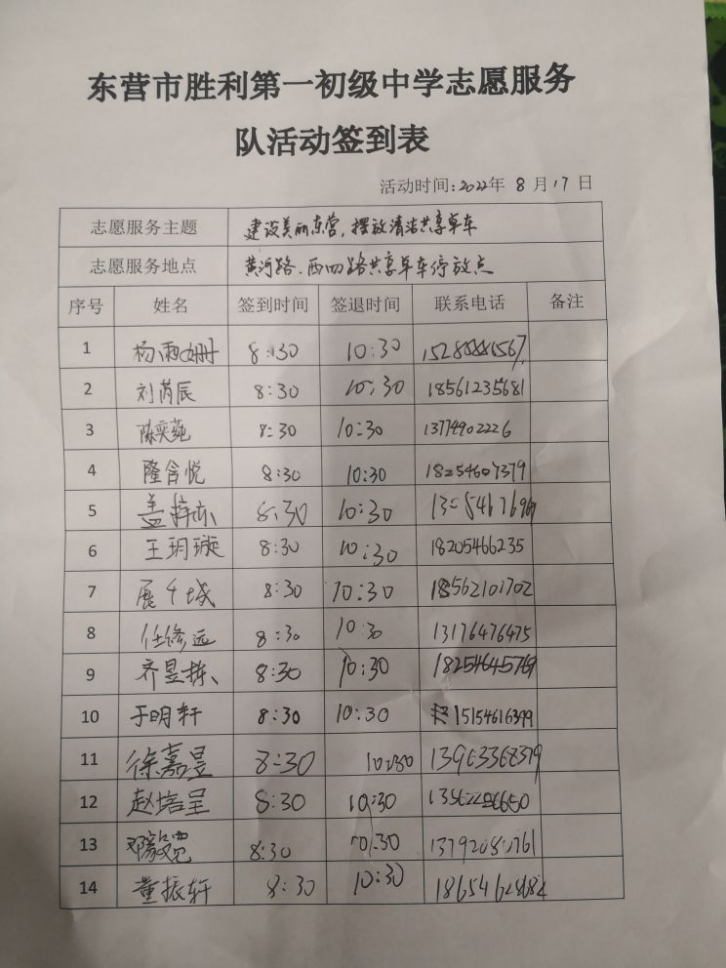 东营市胜利第一初级中学志愿服务
队活动签到表
活动时间:2022年 8月17日
志愿服务主题 建设美丽东营,摆放清洁共享单车
志愿服务地点 黄河路、西四路共享单车停放点
序号 姓名 签到时间 签退时间 联系电话 备注
1 杨雨姗 8:30 10:30
2 刘芮辰 8:30 10:30 18561235681
3 陈奕苑 8:30 10:30 13774902226
4 隆含悦 8:30 10:30 18254607379
5 盖 8:30 10:30
6 王玥璇 8:30 10:30 18205466235
7 展千城 8:30 10:30 18562101702
8 任修远 8:30 10:30 13176476475
9 齐昱栋 8:30 10:30 18254645769
10 于明轩 8:30 10:30 15154616399
11 徐嘉昱 8:30 10:30
12 赵培呈 8:30 10:30
13 邓 8:30 10:30
14 董振轩 8:30 10:30